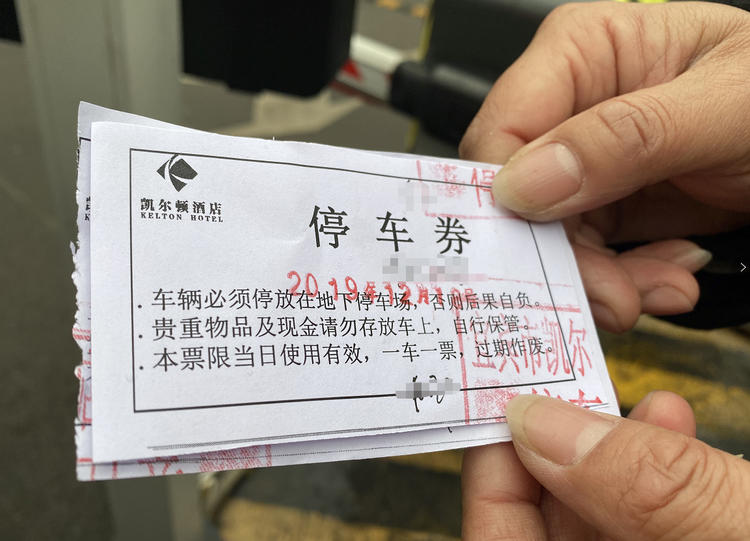 凯尔顿酒店
KELTON HOTEL
停车券
2019年12月
.车辆必须停放在地下停车场，否则后果自负。
.贵重物品及现金请勿存放车上，自行保管。
.本票限当日使用有效，一车一票，过期作废。
宜宾市凯尔